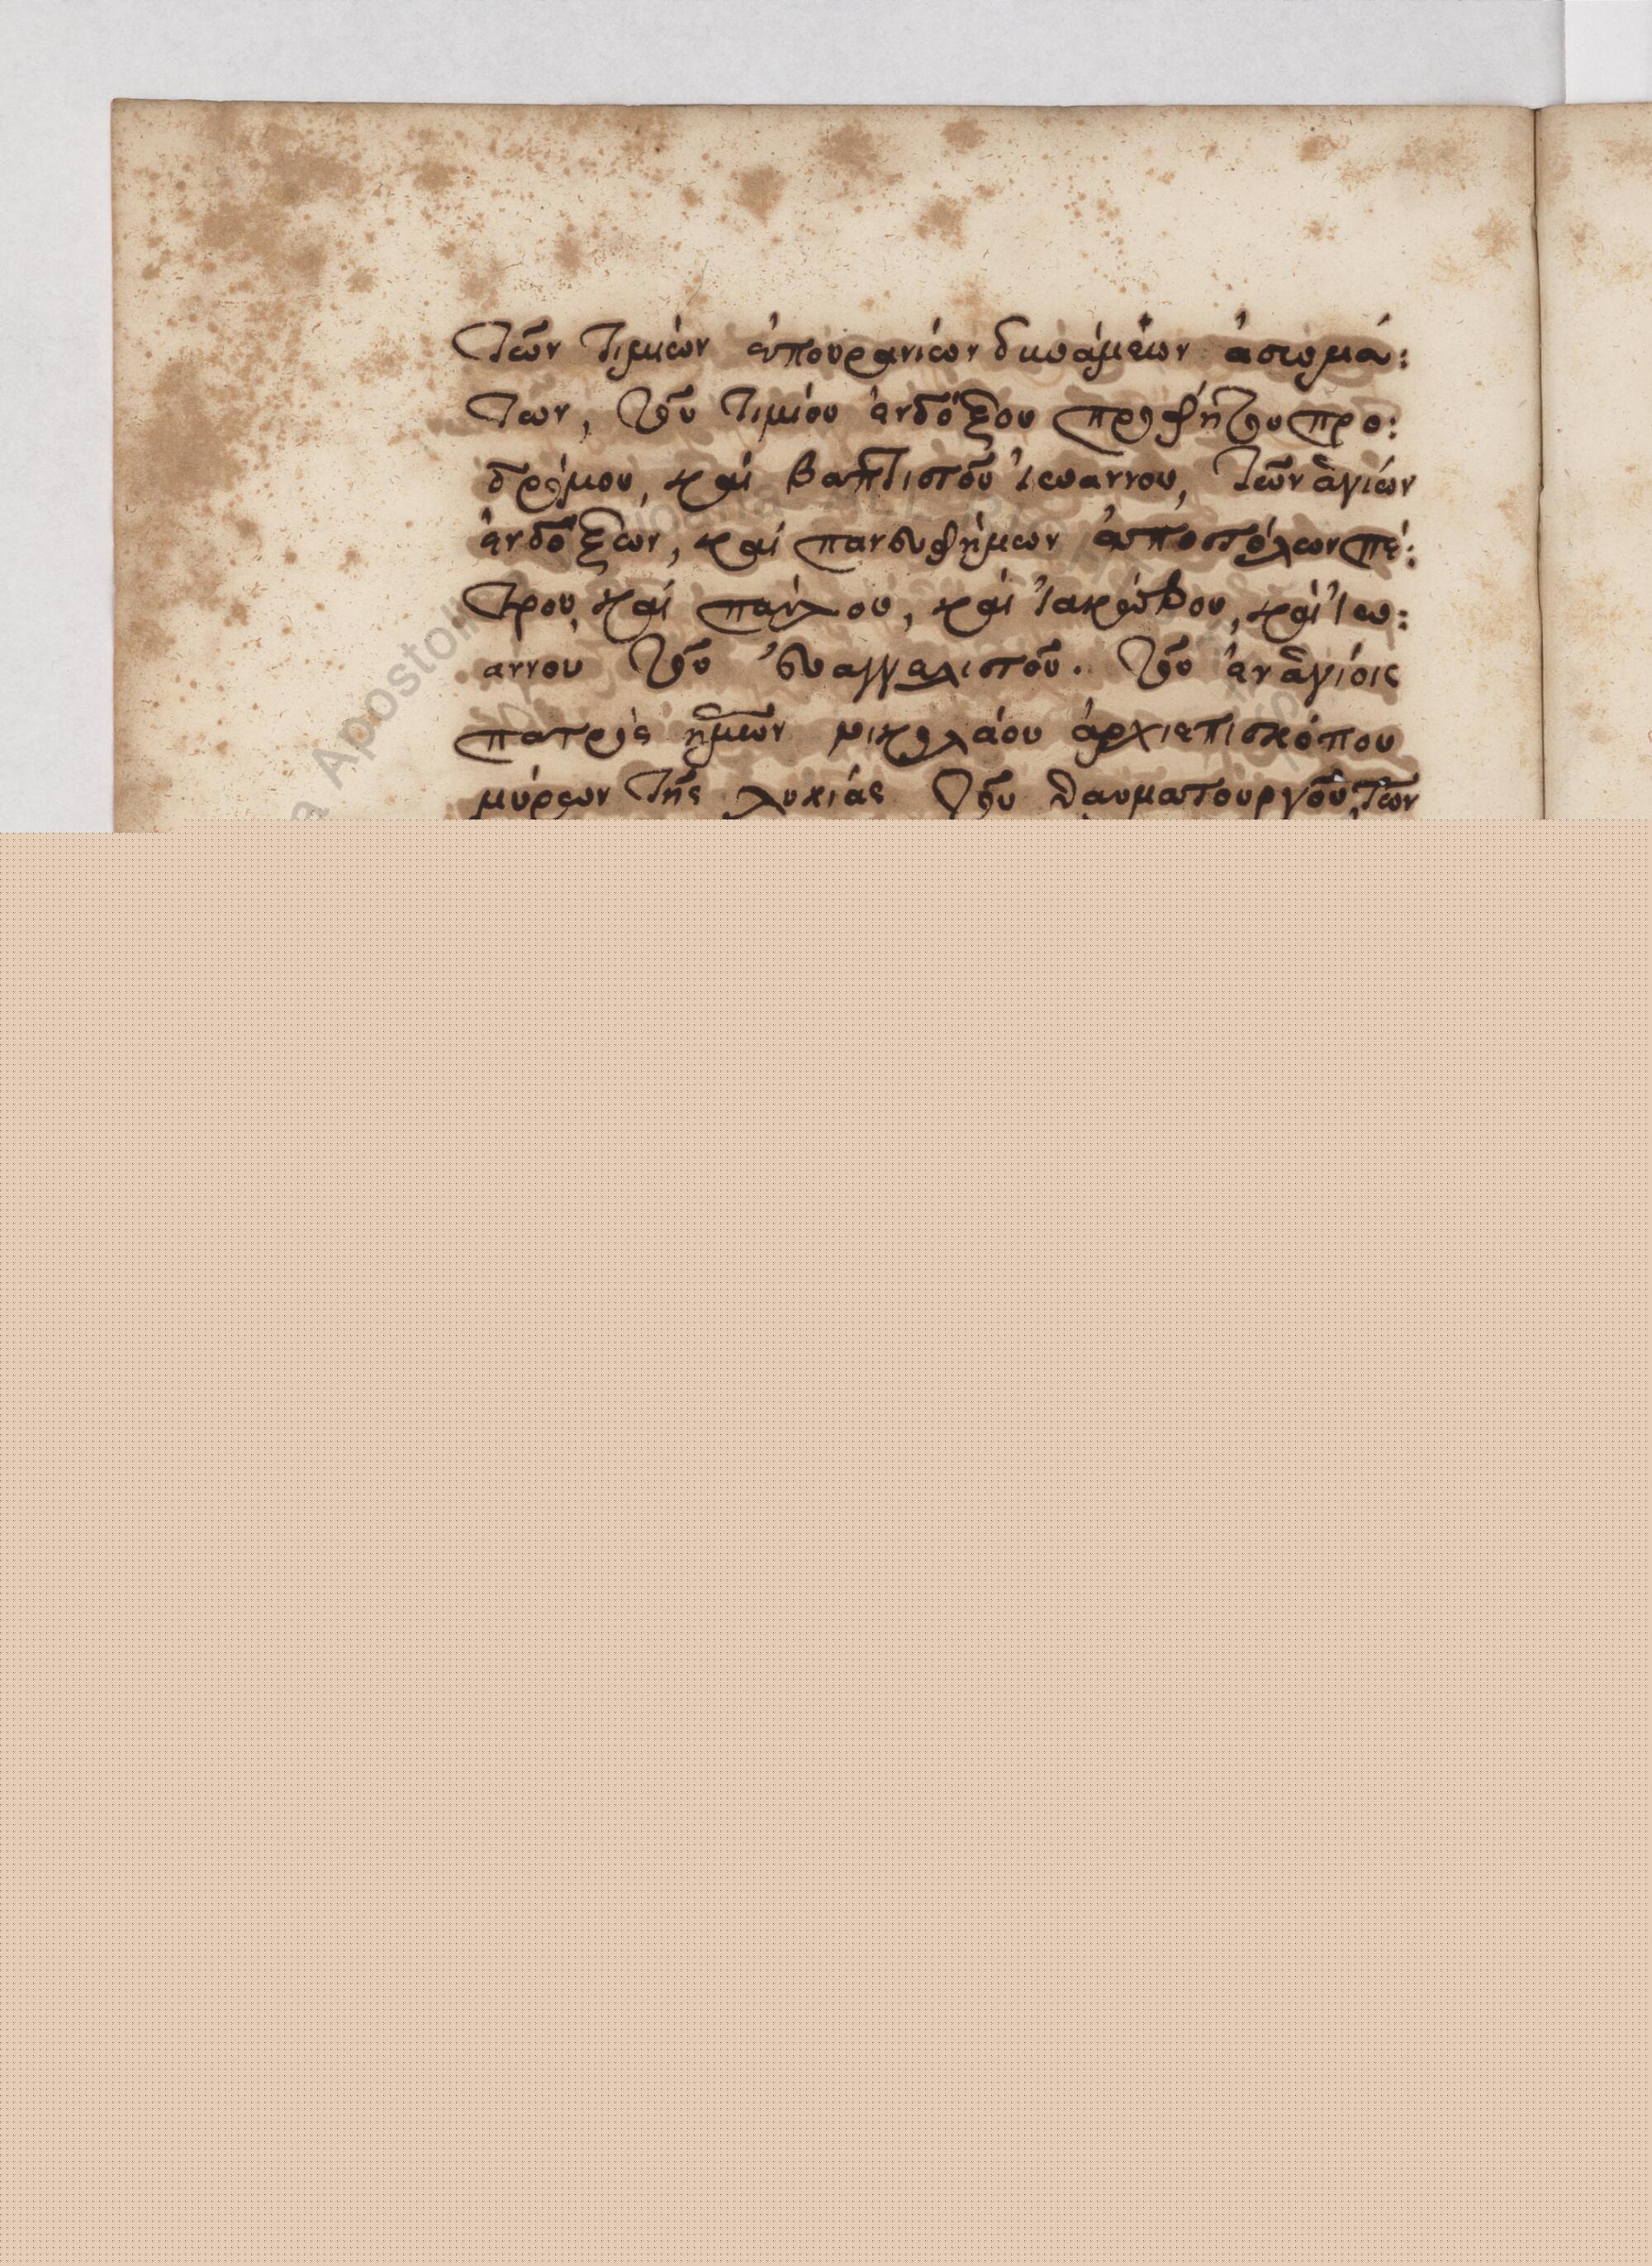 τῶν τιμίων ἐπουρανίων δυνάμεων ἀσωμά:
των, τοῦ τιμίου ἐνδόξου προφήτου προ:
δρόμου, καὶ βαπτιστοῦ Ἰωάννου, τῶν ἁγίων
ἐνδόξων, καὶ πανευφήμων ἀποστόλων πέ:
τρου, καὶ παύλου, καὶ Ἰακώβου, καὶ Ἰω:
άννου τοῦ εὐαγγελιστοῦ. τοῦ ἐν ἁγίοις
πατρὸς ἡμῶν νικολάου ἀρχιεπισκόπου
μύρων τῆς λυκίας τοῦ θαυματουργοῦ, τῶν